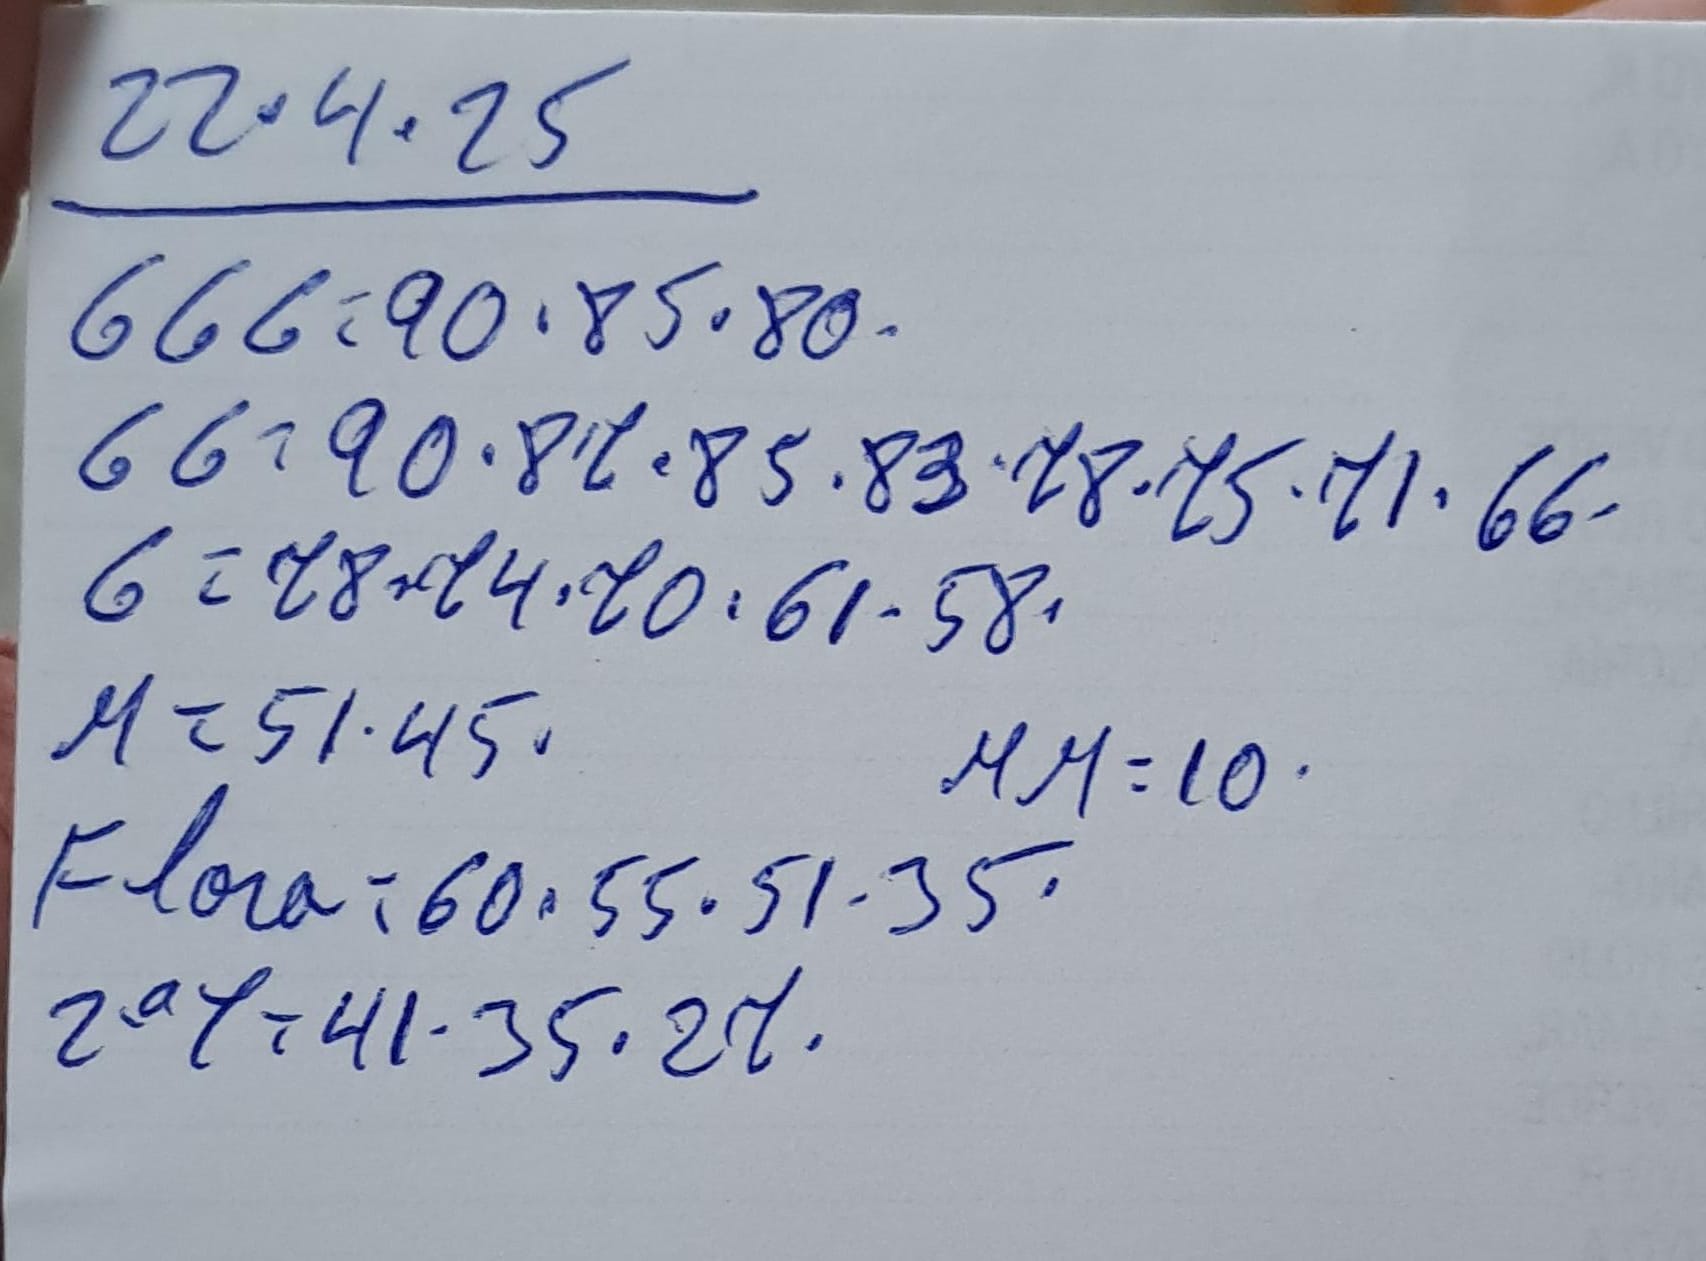 22.4.25
666=90.85.80.
66=90.87.85.83.78.75.71.66.
6=78.74.70.61.58.
M=51.45.
MM=10.
Flora=60.55.51.35.
2ª7=41.35.27.